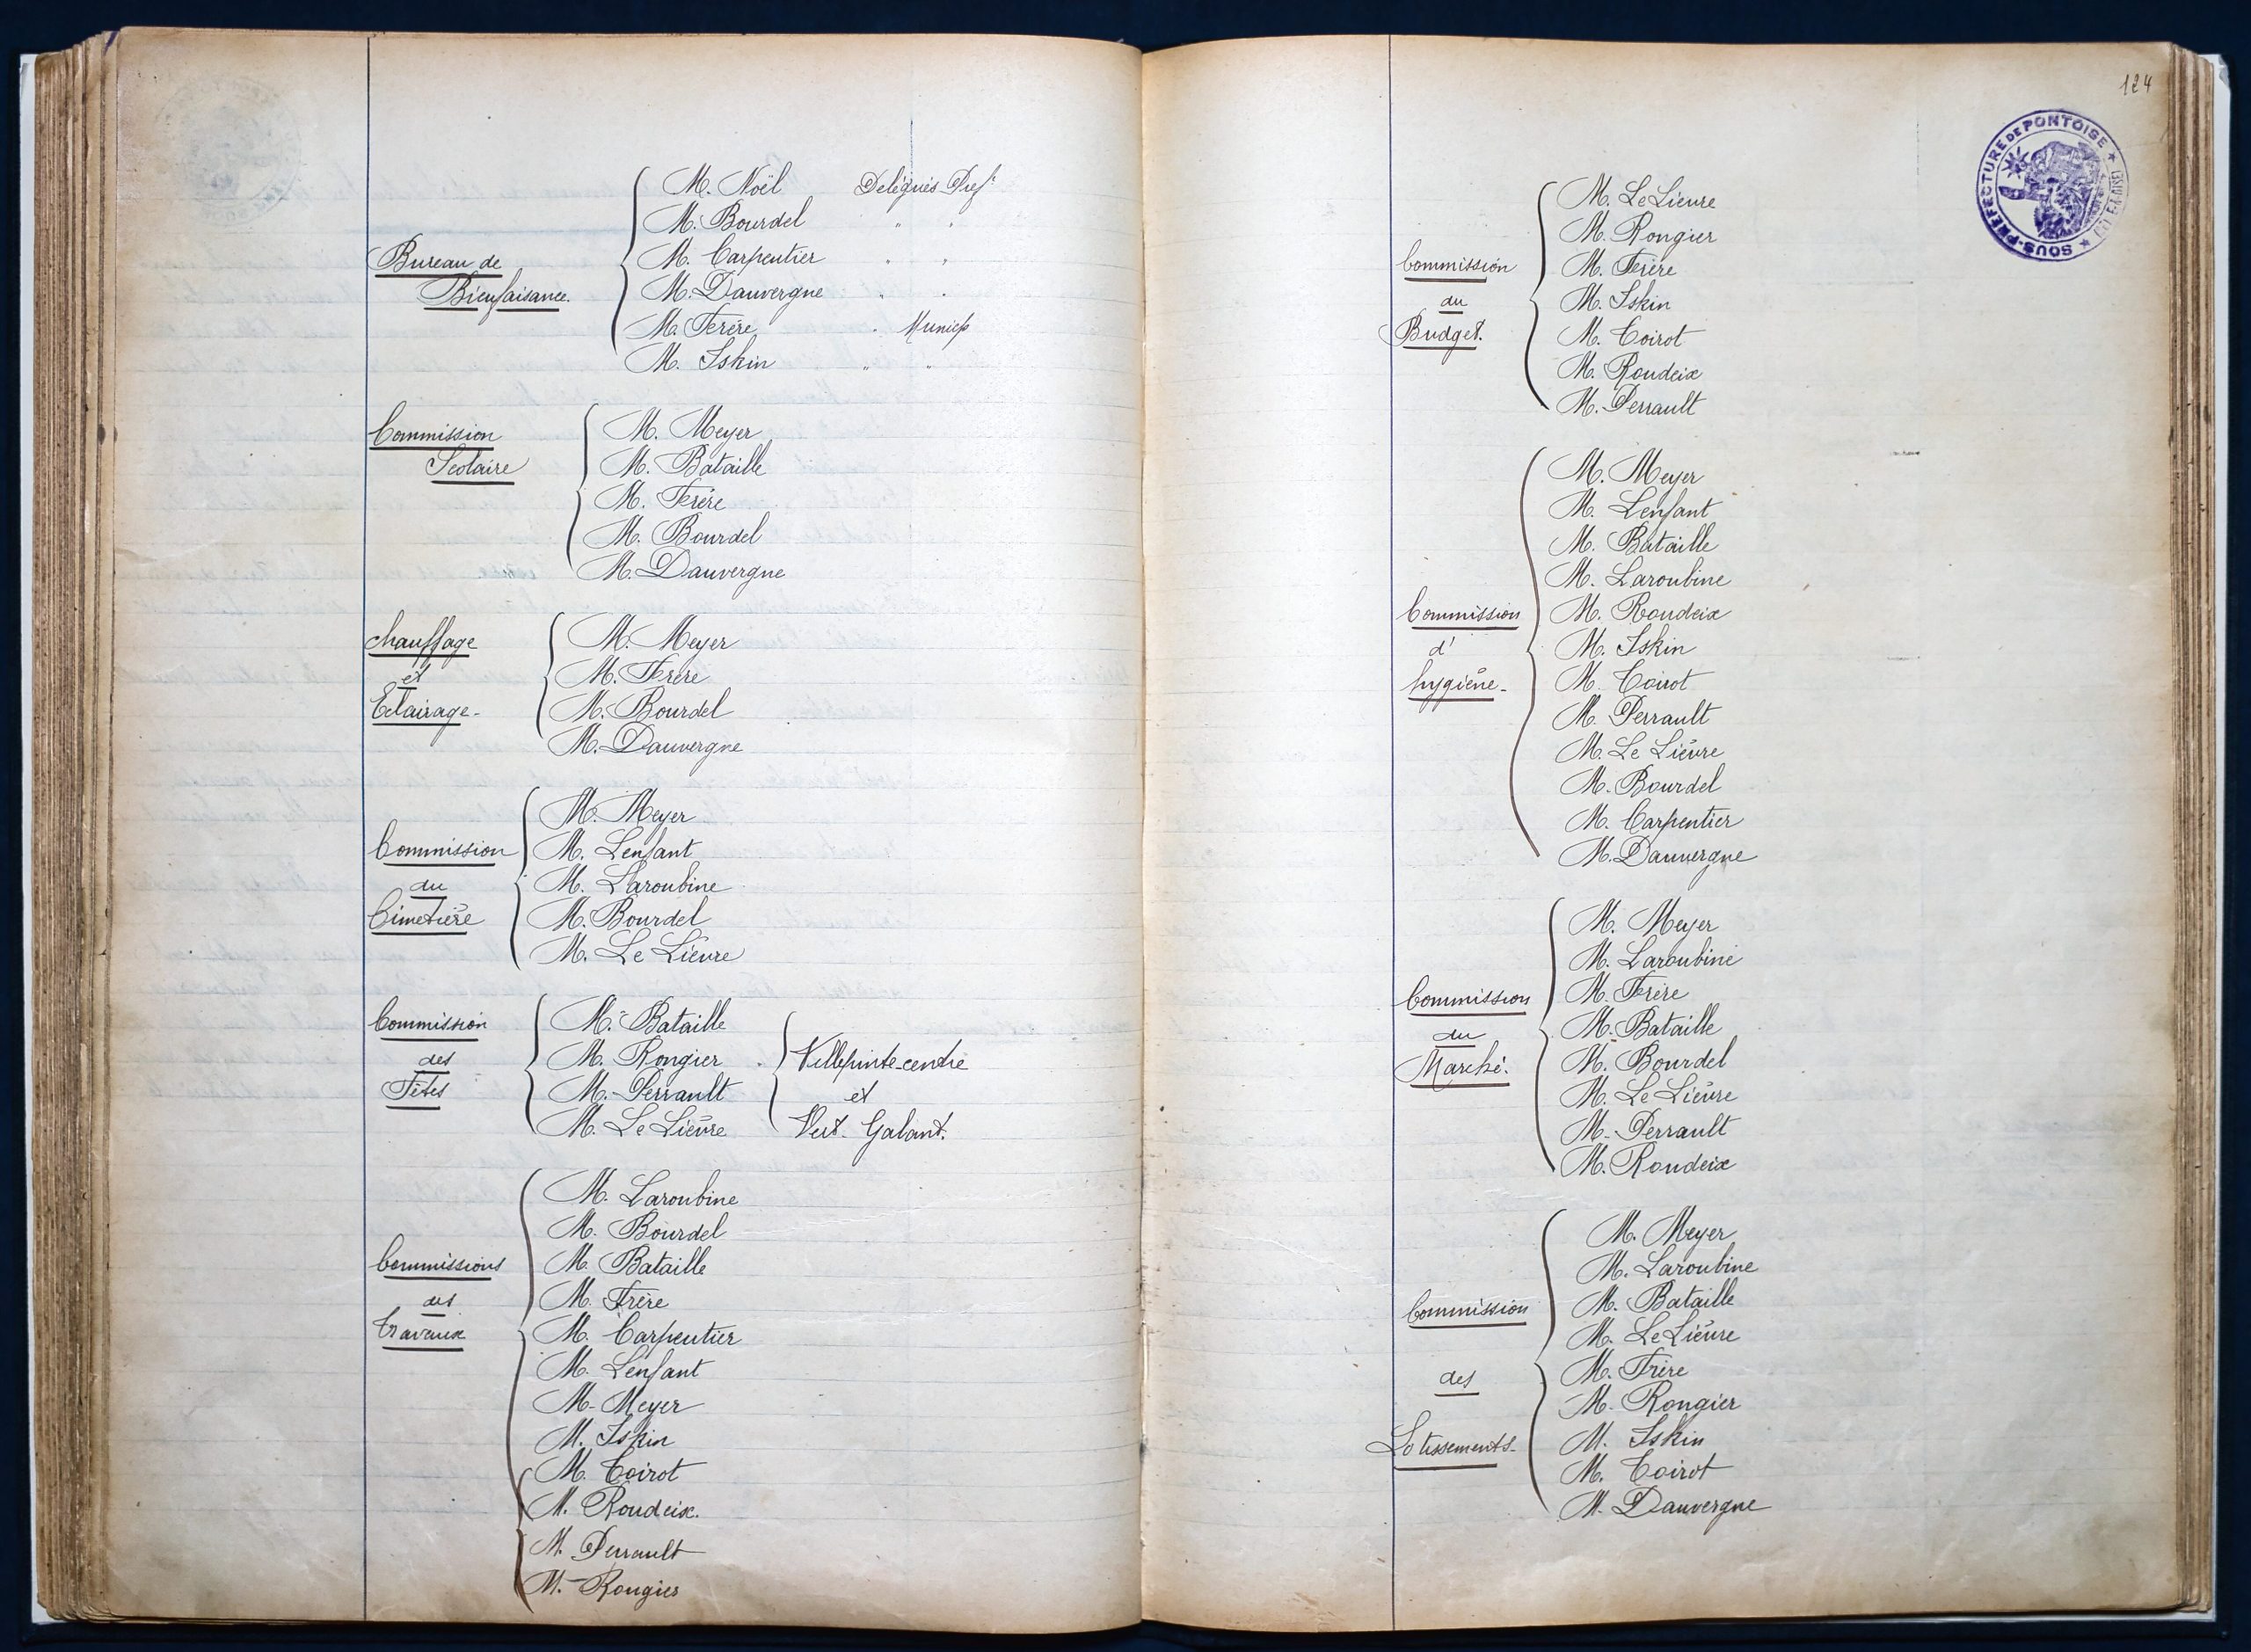 Bureau de
Bienfaisance.
M. Noël Delégués Préf.t
M. Bourdel " "
M. Carpentier " "
M. Dauvergne " "
M. Frère " Municip
M. Iskin " "
Commission
Scolaire
M. Meyer
M. Bataille
M. Frère
M. Bourdel
M. Dauvergne
Chauffage
et
Eclairage-
M. Meyer
M. Frère
M. Bourdel
M. Dauvergne
Commission
du
Cimetière
M. Meyer
M. Lenfant
M. Laroubine
M. Bourdel
M. Le Lièvre
Commission
des
Fêtes
M. Bataille
M. Rongier
M. Perrault
M. Le Lièvre
Villepinte-centre
et
Vert-Galant.
Commissions
des
Travaux
M. Laroubine
M. Bourdel
M. Bataille
M. Frère
M. Carpentier
M. Lenfant
M. Meyer
M. Iskin
M. Toirot
M. Roudeix.
M. Perrault
M. Rongier
124
SOUS-PRÉFECTURE DE PONTOISE
Commission
du
Budget.
M. Le Lièvre
M. Rongier
M. Frère
M. Iskin
M. Toirot
M. Roudeix
M. Perrault
Commission
d'
hygiène-
M. Meyer
M. Lenfant
M. Bataille
M. Laroubine
M. Roudeix
M. Iskin
M. Toirot
M. Perrault
M. Le Lièvre
M. Bourdel
M. Carpentier
M. Dauvergne
Commission
du
Marché.
M. Meyer
M. Laroubine
M. Frère
M. Bataille
M. Bourdel
M. Le Lièvre
M. Perrault
M. Roudeix
Commission
des
Lotissements-
M. Meyer
M. Laroubine
M. Bataille
M. Le Lièvre
M. Frère
M. Rongier
M. Iskin
M. Toirot
M. Dauvergne